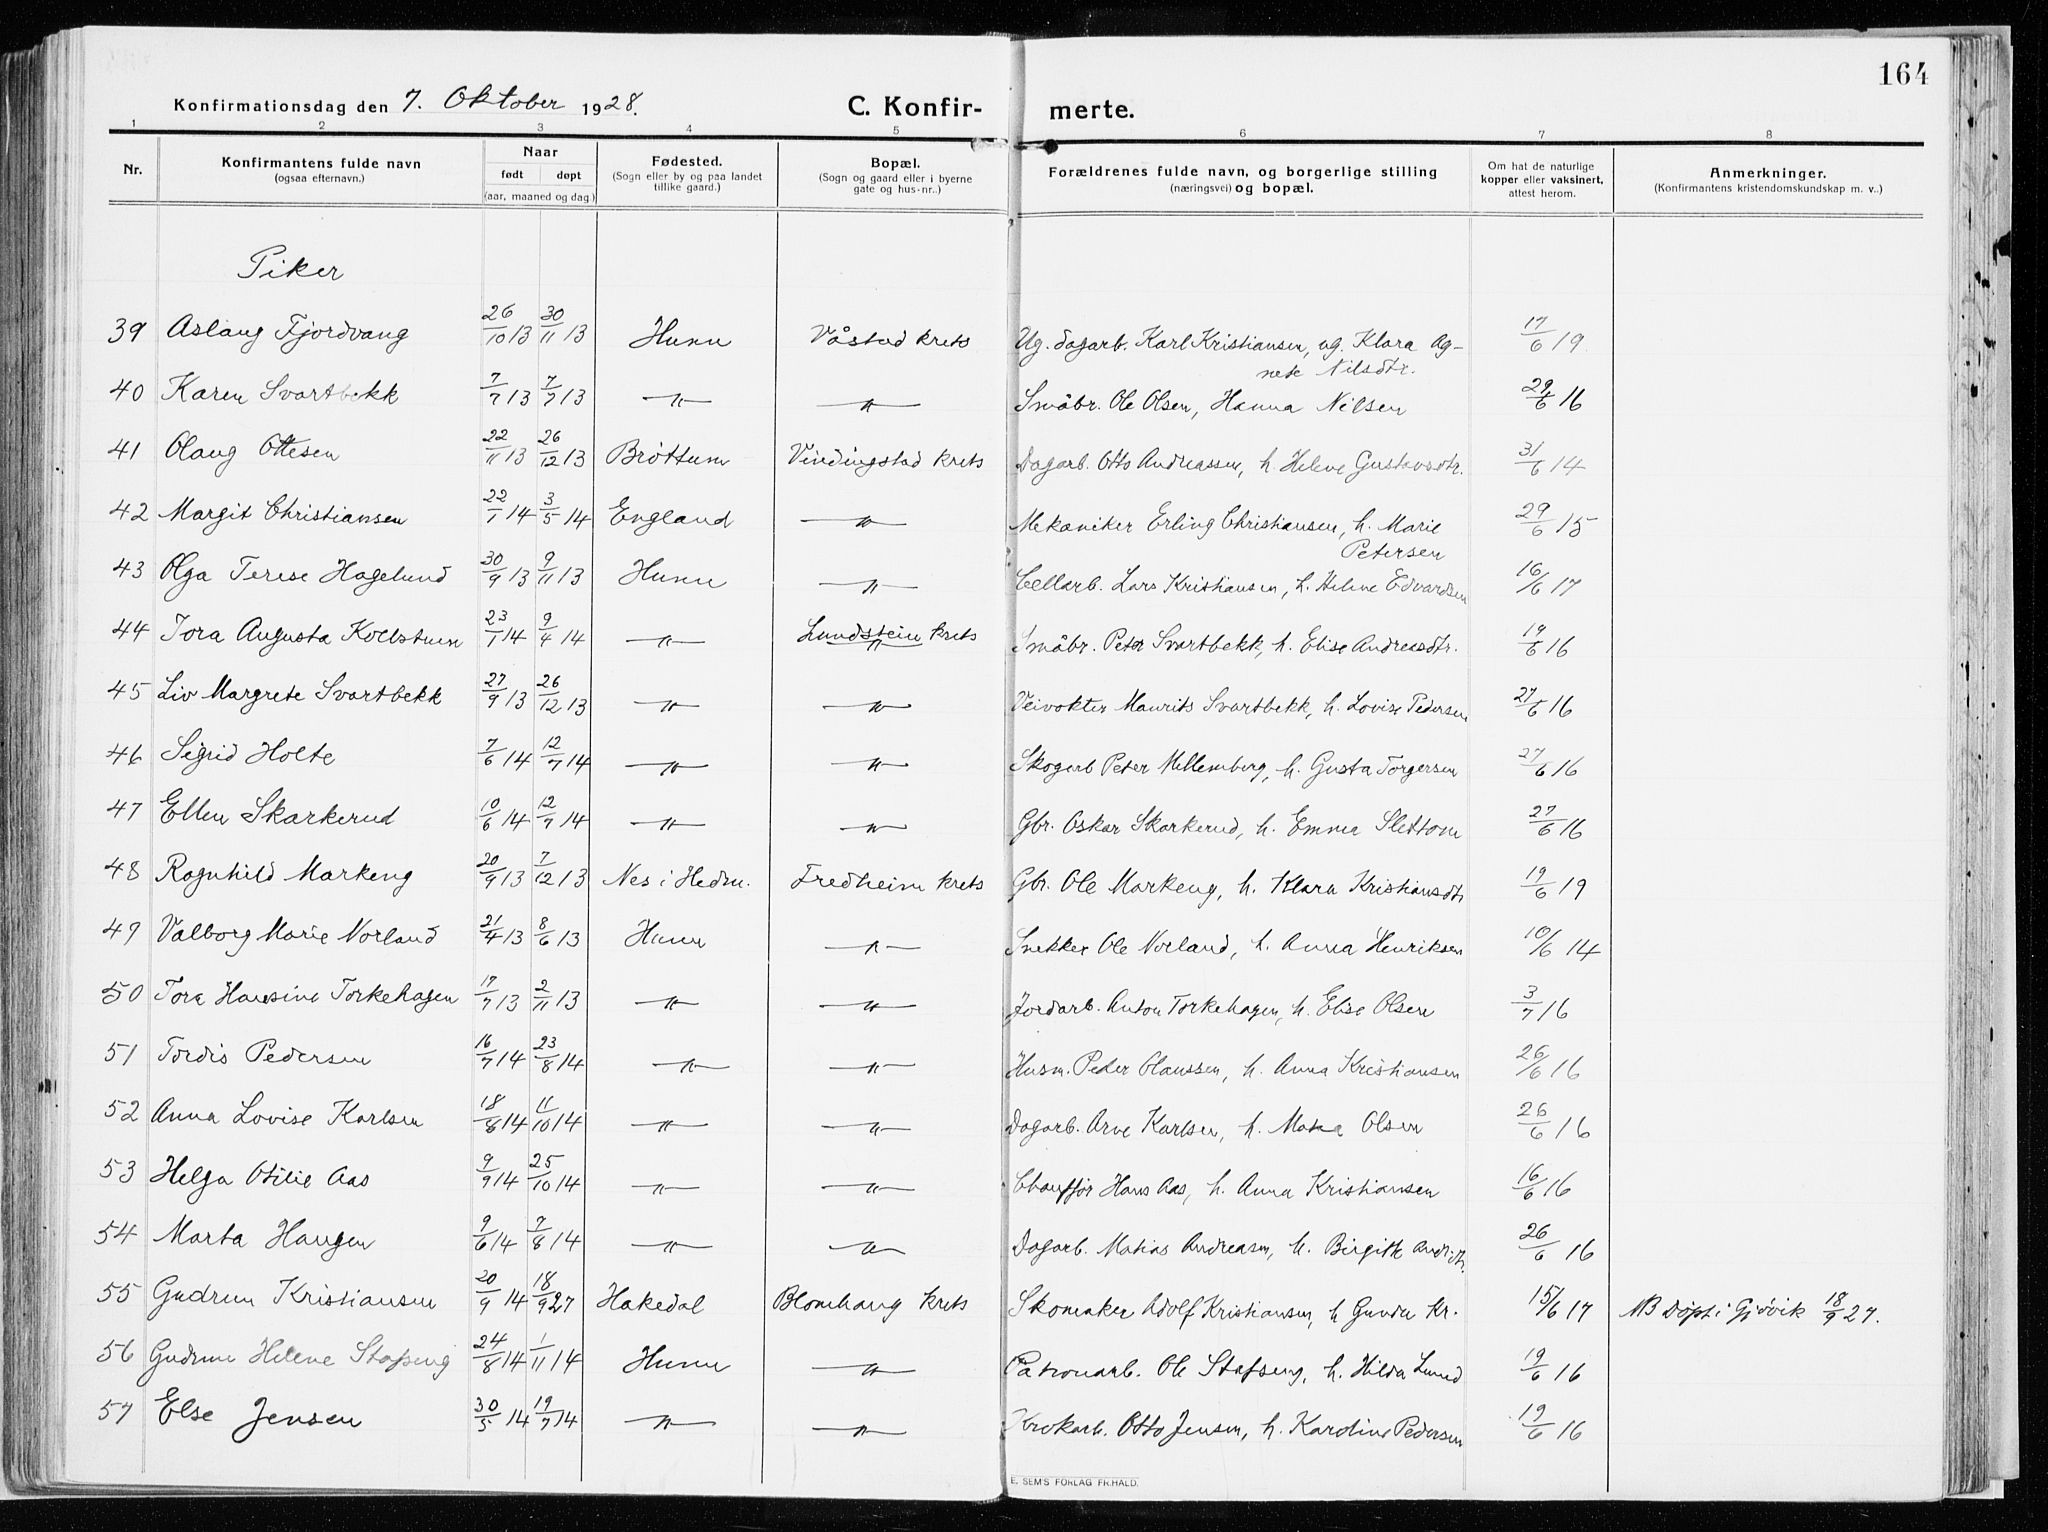 164
Konfirmationsdag den 7. Oktober 1928. C. Konfir- merte.
1 2 3 4 5 6 7 8
Nr. Konfirmantens fulde navn (ogsaa efternavn.) Naar født døpt (aar, maaned og dag) Fødested. (Sogn eller by og paa landet tillike gaard.) Bopæl. (Sogn og gaard eller i byerne gate og hus-nr..) Forældrenes fulde navn, og borgerlige stilling (næringsvei) og bopæl. Om hat de naturlige kopper eller vaksinert, attest herom. Anmerkninger. (Konfirmantens kristendomskundskap m. v..)
Piker
39 Aslaug Fjordvang 26/10 13 30/11 13 Hunn Våstad krets Ug. dagarb. Karl Kristiansen, ug. Klara Ag- 17/6 19
nete Nilsdtr.
40 Karen Svartbekk 7/7 13 7/7 13 –"– –"– Småbr. Ole Olsen, Hanna Nilsen 29/6 16
41 Olaug Ottesen 22/11 13 26/12 13 Brøttum Vindingstad krets Dagarb. Otto Andreassen, h. Helene Gustavsdtr. 31/6 14
42 Margit Christiansen 22/1 14 3/5 14 England –"– Mekaniker Erling Christiansen, h. Marie 29/6 15
Petersen
43 Olga Terese Hagelund 30/9 13 9/11 13 Hunn –"– Cellarb. Lars Kristiansen, h. Helene Edvardsen 16/6 17
44 Tora Augusta Kollstuen 23/1 14 9/4 14 –"– Lundstein krets Småbr. Peter Svartbekk, h. Elise Andreasdtr. 19/6 16
45 Liv Margrete Svartbekk 27/9 13 26/12 13 –"– –"– Veivokter Maurits Svartbekk, h. Lovise Pedersen 27/6 16
46 Sigrid Holte 7/6 14 12/7 14 –"– –"– Skogarb Peter Mellemberg, h. Gusta Torgersen 27/6 16
47 Ellen Skarkerud 10/6 14 12/7 14 –"– –"– Gbr. Oskar Skarkerud, h. Emma Slettom 27/6 16
48 Ragnhild Markeng 20/9 13 7/12 13 Nes i Hedm. Fredheim krets Gbr. Ole Markeng, h. Klara Kristiansdtr 19/6 19
49 Valborg Marie Norland 21/4 13 8/6 13 Hunn –"– Snekker Ole Norland, h. Anna Henriksen 10/6 14
50 Tora Hansine Torkehagen 17/7 13 2/11 13 –"– –"– Jordarb. Anton Torkehagen, h. Elise Olsen 3/7 16
51 Tordis Pedersen 16/7 14 23/8 14 –"– –"– Husm. Peder Olaussen, h. Anna Kristiansen 26/6 16
52 Anna Lovise Karlsen 18/8 14 11/10 14 –"– –"– Dagarb. Arve Karlsen, h. Olsen 26/6 16
53 Helga Otilie Aas 9/9 14 25/10 14 –"– –"– Chauffør Hans Aas, h. Anna Kristiansen 16/6 16
54 Marta Haugen 9/6 14 7/8 14 –"– –"– Dagarb. Matias Andreasen, h. Birgitte Andr.dtr. 26/6 16
55 Gudrun Kristiansen 20/9 14 18/9 27 Hakedal Blomhaug krets Skomaker Adolf Kristiansen, h Gunda Kr. 15/6 17 NB Døpt i Gjøvik 18/9 27.
56 Gudrun Helene Stafseng 24/8 14 1/11 14 Hunn –"– Patronarb. Ole Stafseng, h. Hilda Lund 19/6 16
57 Else Jensen 30/5 14 19/7 14 –"– –"– Krokarb. Otto Jensen, h. Karoline Pedersen 19/6 16
E. SEM'S FORLAG FR.HALD.